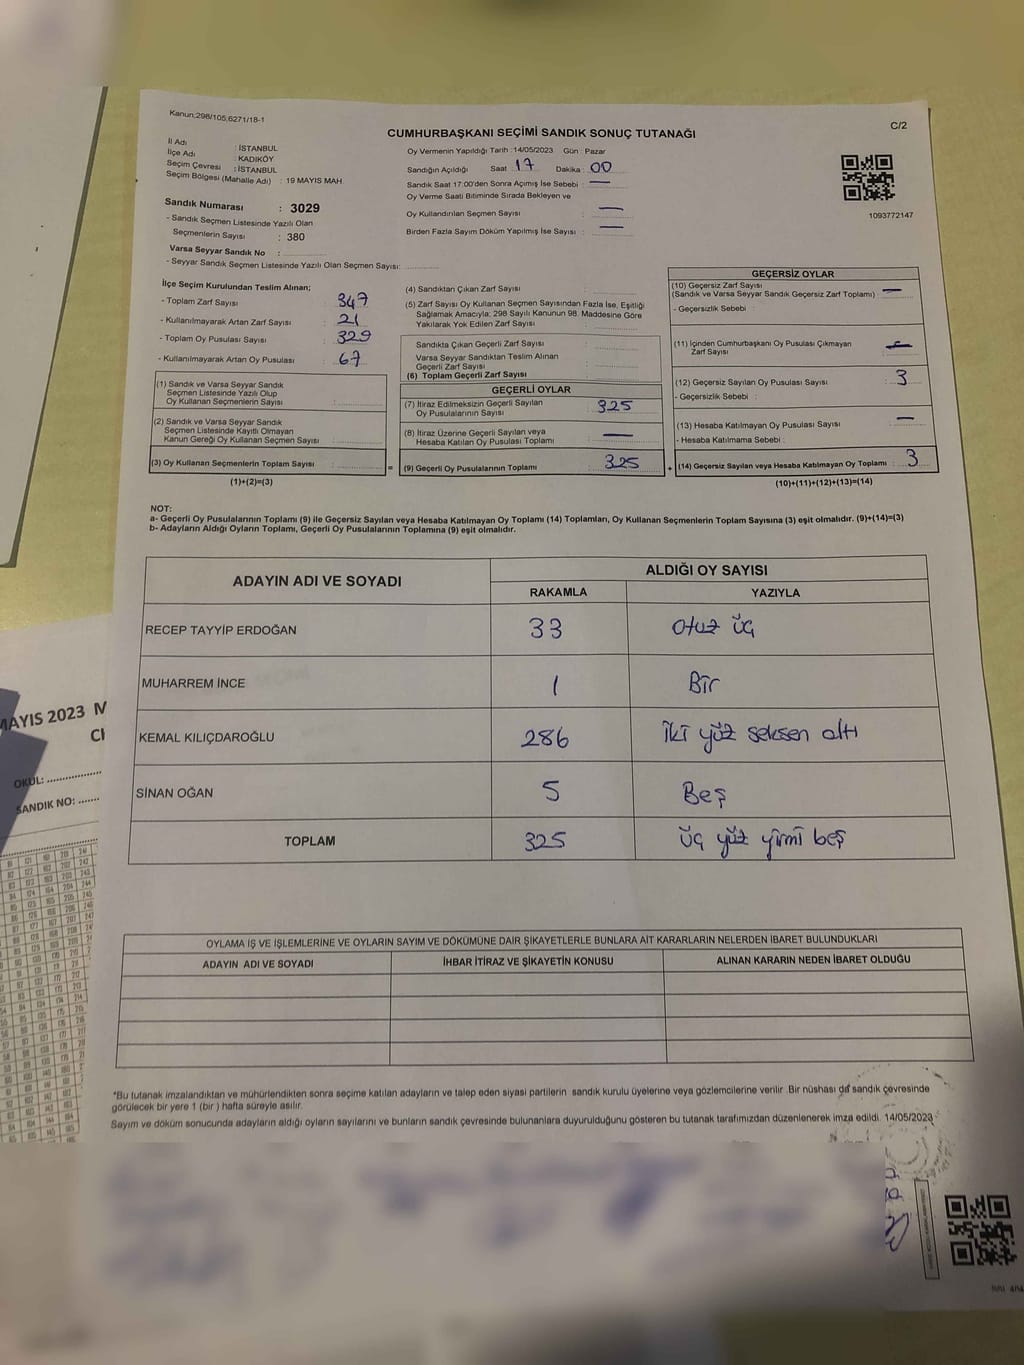 Kanun;298/105;6271/18-1
C/2
CUMHURBAŞKANI SEÇİMİ SANDIK SONUÇ TUTANAĞI
İl Adı : İSTANBUL
İlçe Adı : KADIKÖY
Seçim Çevresi : İSTANBUL
Seçim Bölgesi (Mahalle Adı) : 19 MAYIS MAH.
Sandık Numarası : 3029
- Sandık Seçmen Listesinde Yazılı Olan
Seçmenlerin Sayısı : 380
Varsa Seyyar Sandık No :
- Seyyar Sandık Seçmen Listesinde Yazılı Olan Seçmen Sayısı:
Oy Vermenin Yapıldığı Tarih :14/05/2023 Gün : Pazar
Sandığın Açıldığı Saat : 17 Dakika : 00
Sandık Saat 17:00'den Sonra Açımış İse Sebebi : —
Oy Verme Saati Bitiminde Sırada Bekleyen ve
Oy Kullandırılan Seçmen Sayısı : —
Birden Fazla Sayım Döküm Yapılmış İse Sayısı : —
1093772147
İlçe Seçim Kurulundan Teslim Alınan;
- Toplam Zarf Sayısı : 347
- Kullanılmayarak Artan Zarf Sayısı : 21
- Toplam Oy Pusulası Sayısı : 329
- Kullanılmayarak Artan Oy Pusulası : 67
(1) Sandık ve Varsa Seyyar Sandık
Seçmen Listesinde Yazılı Olup
Oy Kullanan Seçmenlerin Sayısı :
(2) Sandık ve Varsa Seyyar Sandık
Seçmen Listesinde Kayıtlı Olmayan
Kanun Gereği Oy Kullanan Seçmen Sayısı :
(3) Oy Kullanan Seçmenlerin Toplam Sayısı :
(1)+(2)=(3)
(4) Sandıktan Çıkan Zarf Sayısı :
(5) Zarf Sayısı Oy Kullanan Seçmen Sayısından Fazla İse, Eşitliği
Sağlamak Amacıyla; 298 Sayılı Kanunun 98. Maddesine Göre
Yakılarak Yok Edilen Zarf Sayısı :
Sandıkta Çıkan Geçerli Zarf Sayısı :
Varsa Seyyar Sandıktan Teslim Alınan
Geçerli Zarf Sayısı :
(6) Toplam Geçerli Zarf Sayısı :
GEÇERLİ OYLAR
(7) İtiraz Edilmeksizin Geçerli Sayılan
Oy Pusulalarının Sayısı : 325
(8) İtiraz Üzerine Geçerli Sayılan veya
Hesaba Katılan Oy Pusulası Toplamı : —
= (9) Geçerli Oy Pusulalarının Toplamı : 325
GEÇERSİZ OYLAR
(10) Geçersiz Zarf Sayısı
(Sandık ve Varsa Seyyar Sandık Geçersiz Zarf Toplamı) : —
- Geçersizlik Sebebi :
(11) İçinden Cumhurbaşkanı Oy Pusulası Çıkmayan
Zarf Sayısı :
(12) Geçersiz Sayılan Oy Pusulası Sayısı : 3
- Geçersizlik Sebebi :
(13) Hesaba Katılmayan Oy Pusulası Sayısı : —
- Hesaba Katılmama Sebebi :
+ (14) Geçersiz Sayılan veya Hesaba Katılmayan Oy Toplamı : 3
(10)+(11)+(12)+(13)=(14)
NOT:
a- Geçerli Oy Pusulalarının Toplamı (9) ile Geçersiz Sayılan veya Hesaba Katılmayan Oy Toplamı (14) Toplamları, Oy Kullanan Seçmenlerin Toplam Sayısına (3) eşit olmalıdır. (9)+(14)=(3)
b- Adayların Aldığı Oyların Toplamı, Geçerli Oy Pusulalarının Toplamına (9) eşit olmalıdır.
ADAYIN ADI VE SOYADI ALDIĞI OY SAYISI
RAKAMLA YAZIYLA
RECEP TAYYİP ERDOĞAN 33 Otuz üç
MUHARREM İNCE 1 Bir
KEMAL KILIÇDAROĞLU 286 İki yüz seksen altı
SİNAN OĞAN 5 Beş
TOPLAM 325 Üç yüz yirmi beş
OYLAMA İŞ VE İŞLEMLERİNE VE OYLARIN SAYIM VE DÖKÜMÜNE DAİR ŞİKAYETLERLE BUNLARA AİT KARARLARIN NELERDEN İBARET BULUNDUKLARI
ADAYIN ADI VE SOYADI İHBAR İTİRAZ VE ŞİKAYETİN KONUSU ALINAN KARARIN NEDEN İBARET OLDUĞU
*Bu tutanak imzalandıktan ve mühürlendikten sonra seçime katılan adayların ve talep eden siyasi partilerin sandık kurulu üyelerine veya gözlemcilerine verilir .Bir nüshası da sandık çevresinde
görülecek bir yere 1 (bir ) hafta süreyle asılır.
Sayım ve döküm sonucunda adayların aldığı oyların sayılarını ve bunların sandık çevresinde bulunanlara duyurulduğunu gösteren bu tutanak tarafımızdan düzenlenerek imza edildi. 14/05/2023
MAYIS 2023
OKUL:
SANDIK NO: